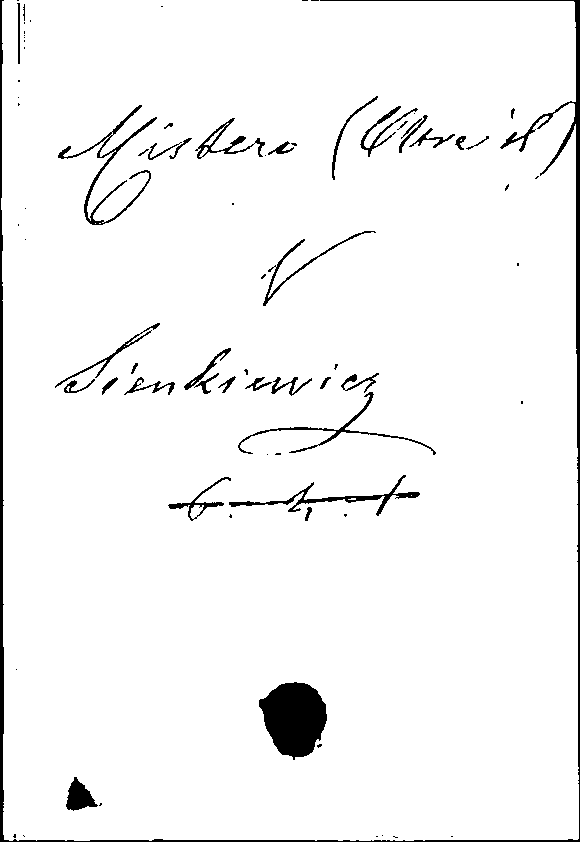 Mistero (Oltre il)
V
Sienkiewicz
6. 4. 1